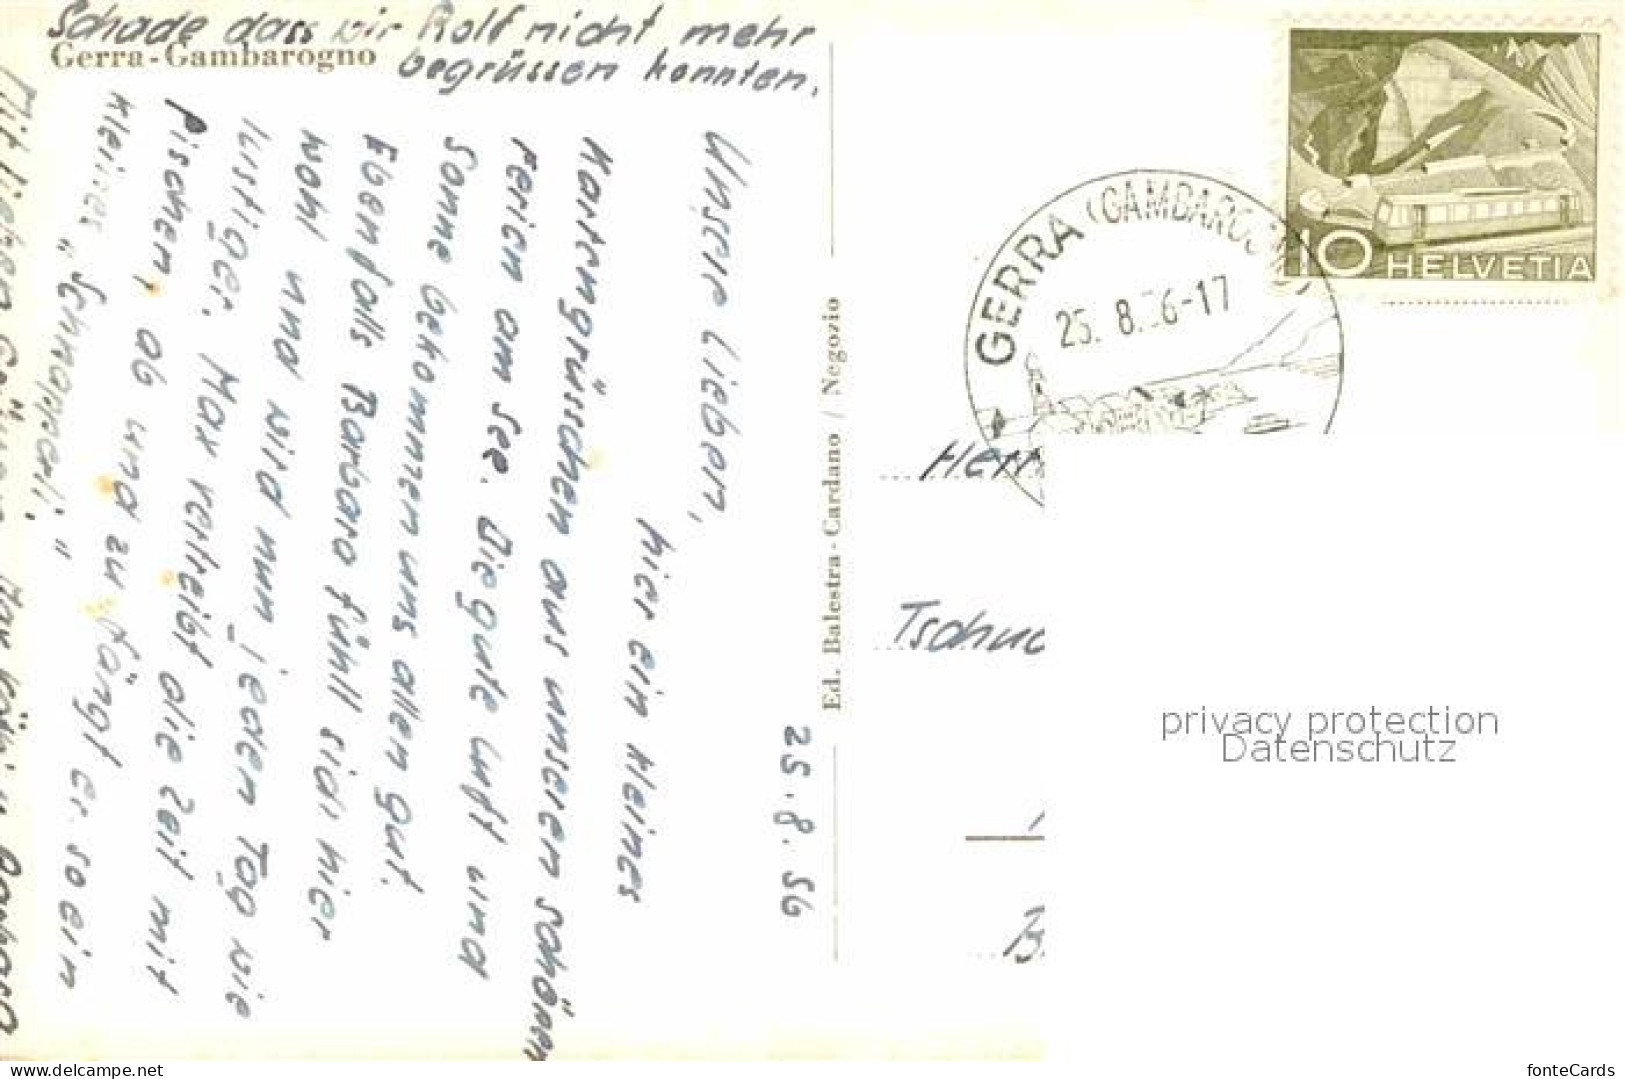 Schade dass wir Rolf nicht mehr
begrüssen konnten.
Gerra-Gambarogno
25.8.56
Unsere Lieben,
hier ein kleines
Kartengrüsschen aus unseren schönen
Ferien am See. Die gute Luft und
Sonne bekommen uns allen gut.
Ebenfalls Barbara fühlt sich hier
wohl und wird nun jeden Tag wie
lustiger. Max vertreibt die Zeit mit
Fischen, ab und zu fängt er so ein
kleines „Schnapperli."
Mit lieben
Ed. Balestra-Cardano / Negozio
GERRA (GAMBAROGNO)
25. 8. 56-17
10 HELVETIA
Herr
Tschu
privacy protection
Datenschutz
fonteCards